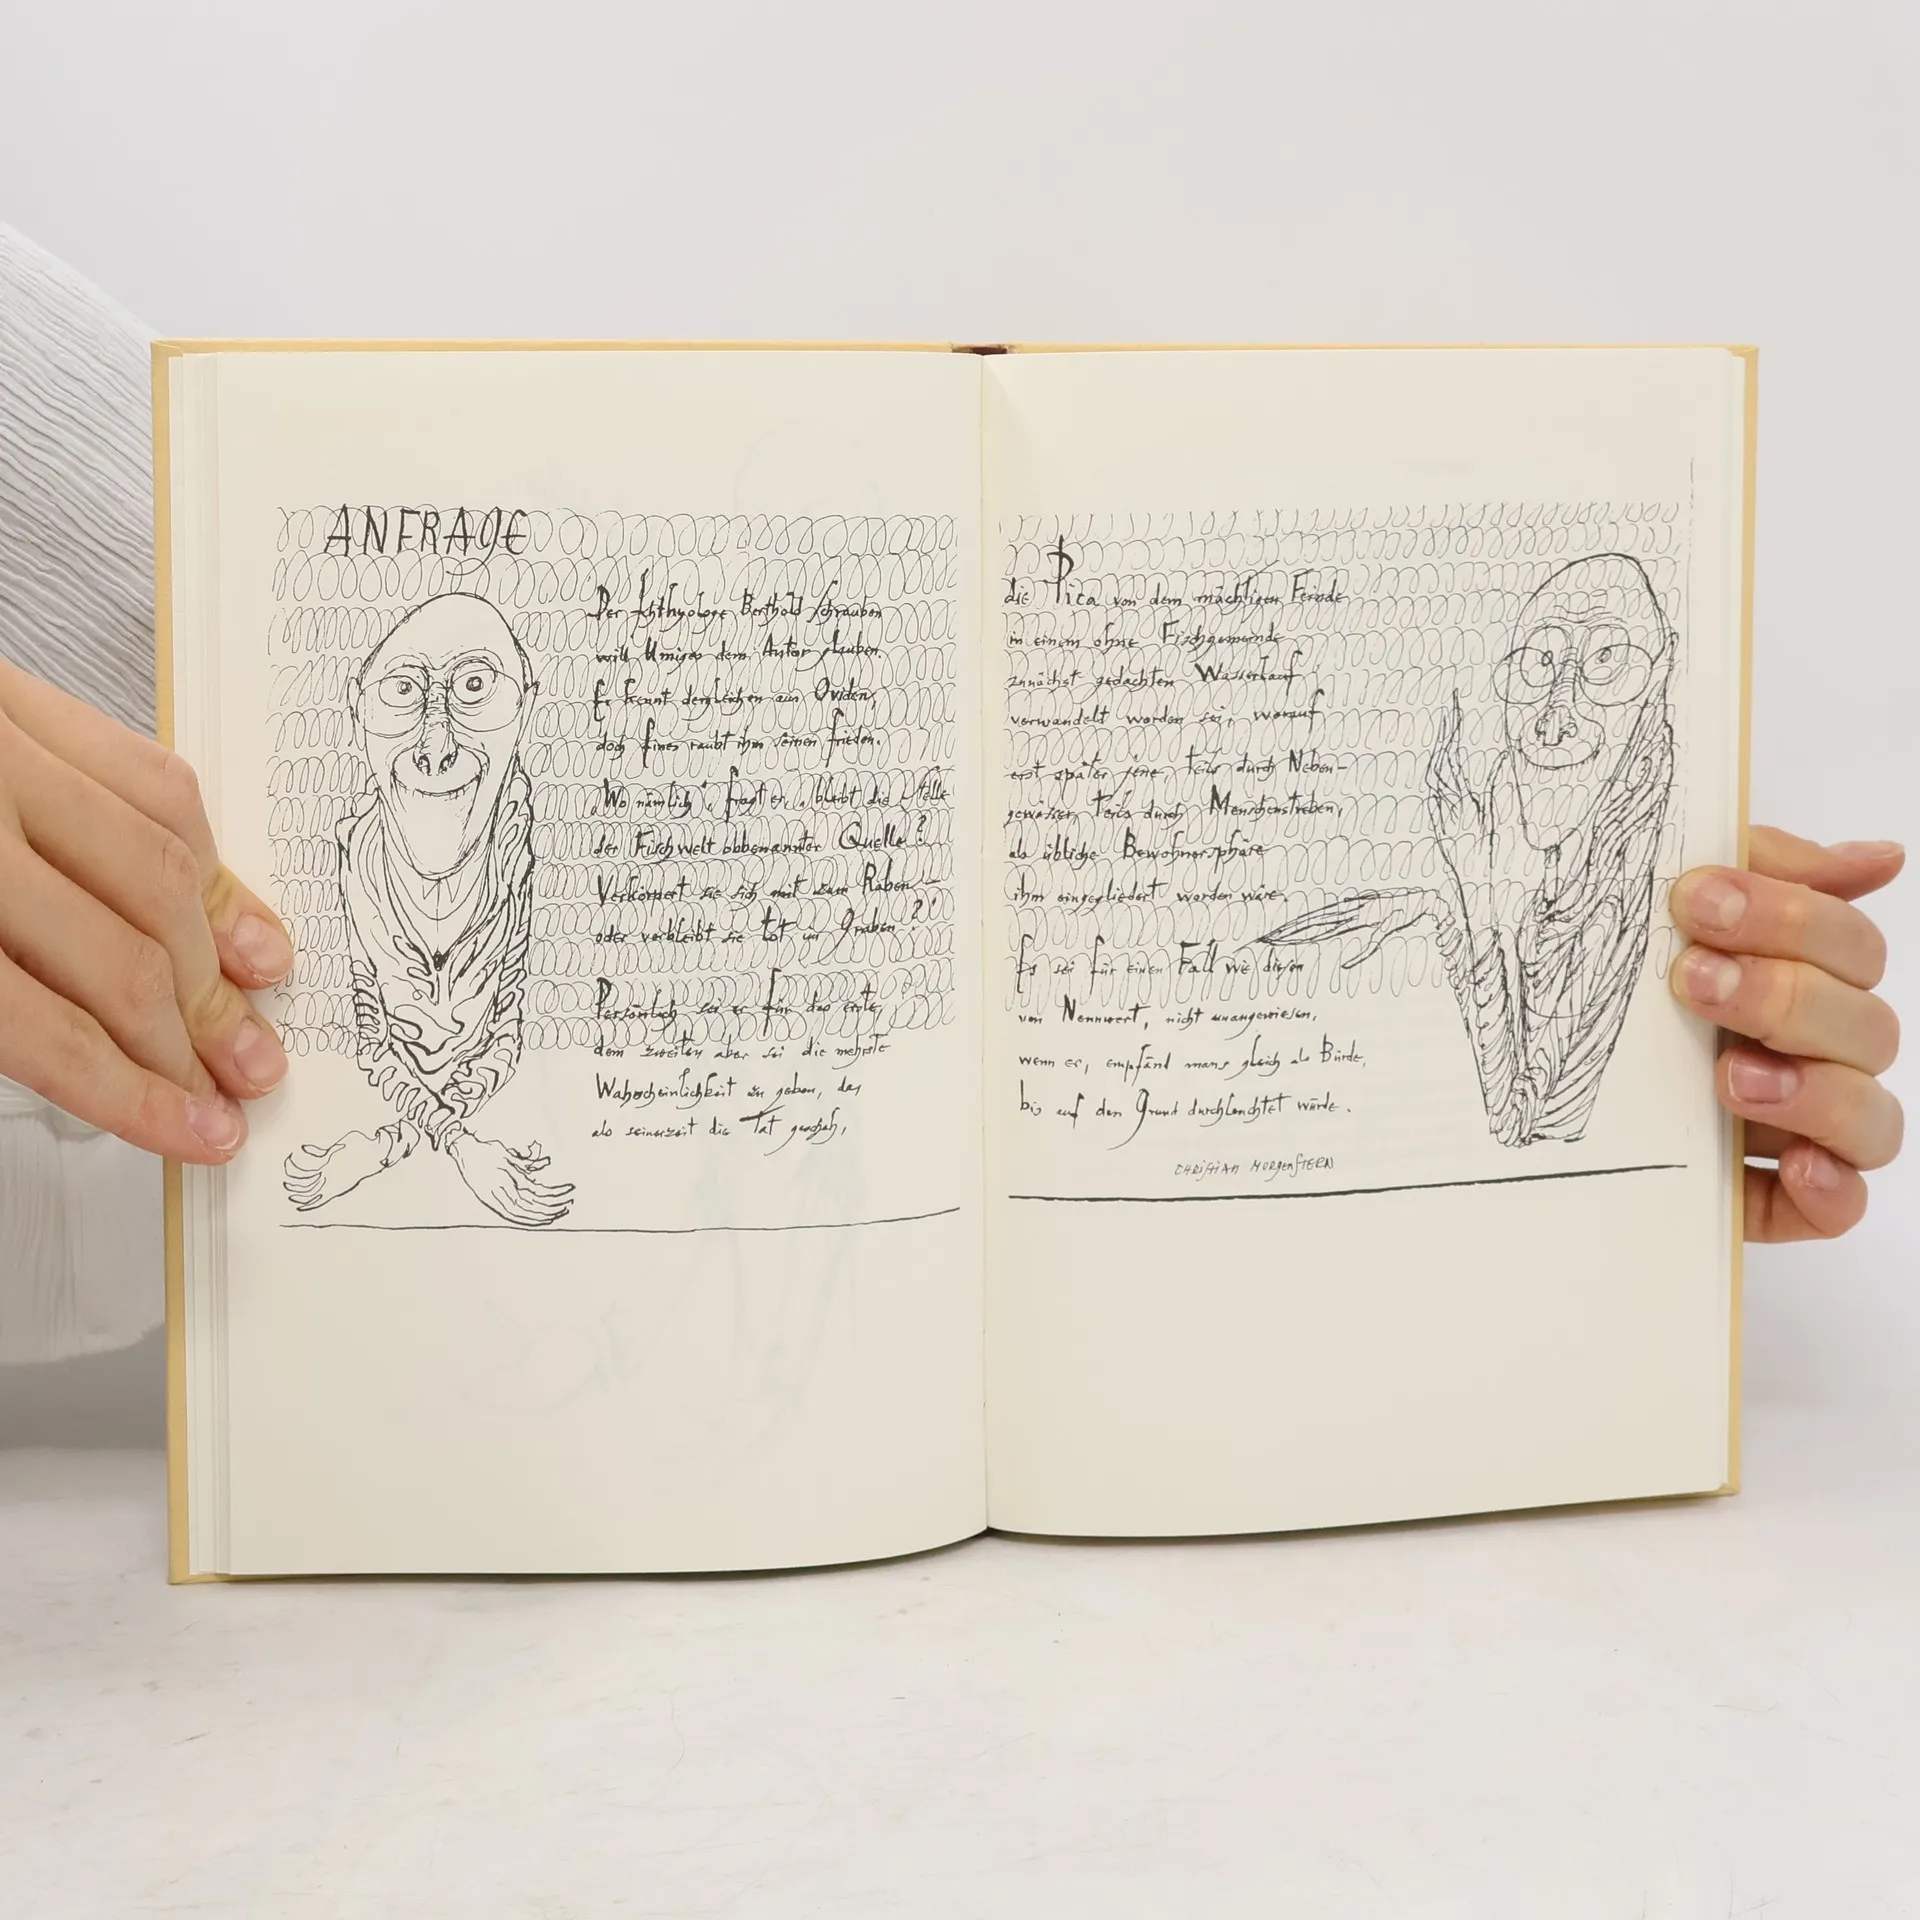 ANFRAGE
Der Ichthyologe Berthold Schrauben
will Umiges dem Autor glauben.
Er kennt dergleichen aus Oviden,
doch Eines raubt ihm seinen Frieden.
„Wo nämlich", fragt er, „bleibt die Stelle
der Fischwelt obbenannter Quelle?
Verkörpert sie sich mit zum Raben –
oder verbleibt sie tot im Graben?"
Persönlich sei er für das erste,
dem zweiten aber sei die mehrste
Wahrscheinlichkeit zu geben, da,
als seinerzeit die Tat geschah,
die Pica von dem mächtigen Feinde
in einem ohne Fischgemeinde
zunächst gedachten Wasserlauf
verwandelt worden sei, worauf
erst später jene, teils durch Neben-
gewässer, teils durch Menschenstreben,
als übliche Bewohnersphäre
ihm eingegliedert worden wäre.
Es sei für einen Fall wie diesen
von Nennwert, nicht unangewiesen,
wenn er, empfänd mans gleich als Bürde,
bis auf den Grund durchleuchtet würde.
CHRISTIAN MORGENSTERN